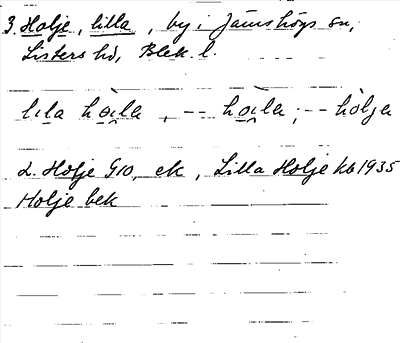 3. Holje, lilla, by i Jämshögs sn,
Listers hd, Blek. l.
lıla hòi̯la, -- hòi̯la; -- hòlja
L. Holje G10, ek, Lilla Holje kb 1935
Holje bek